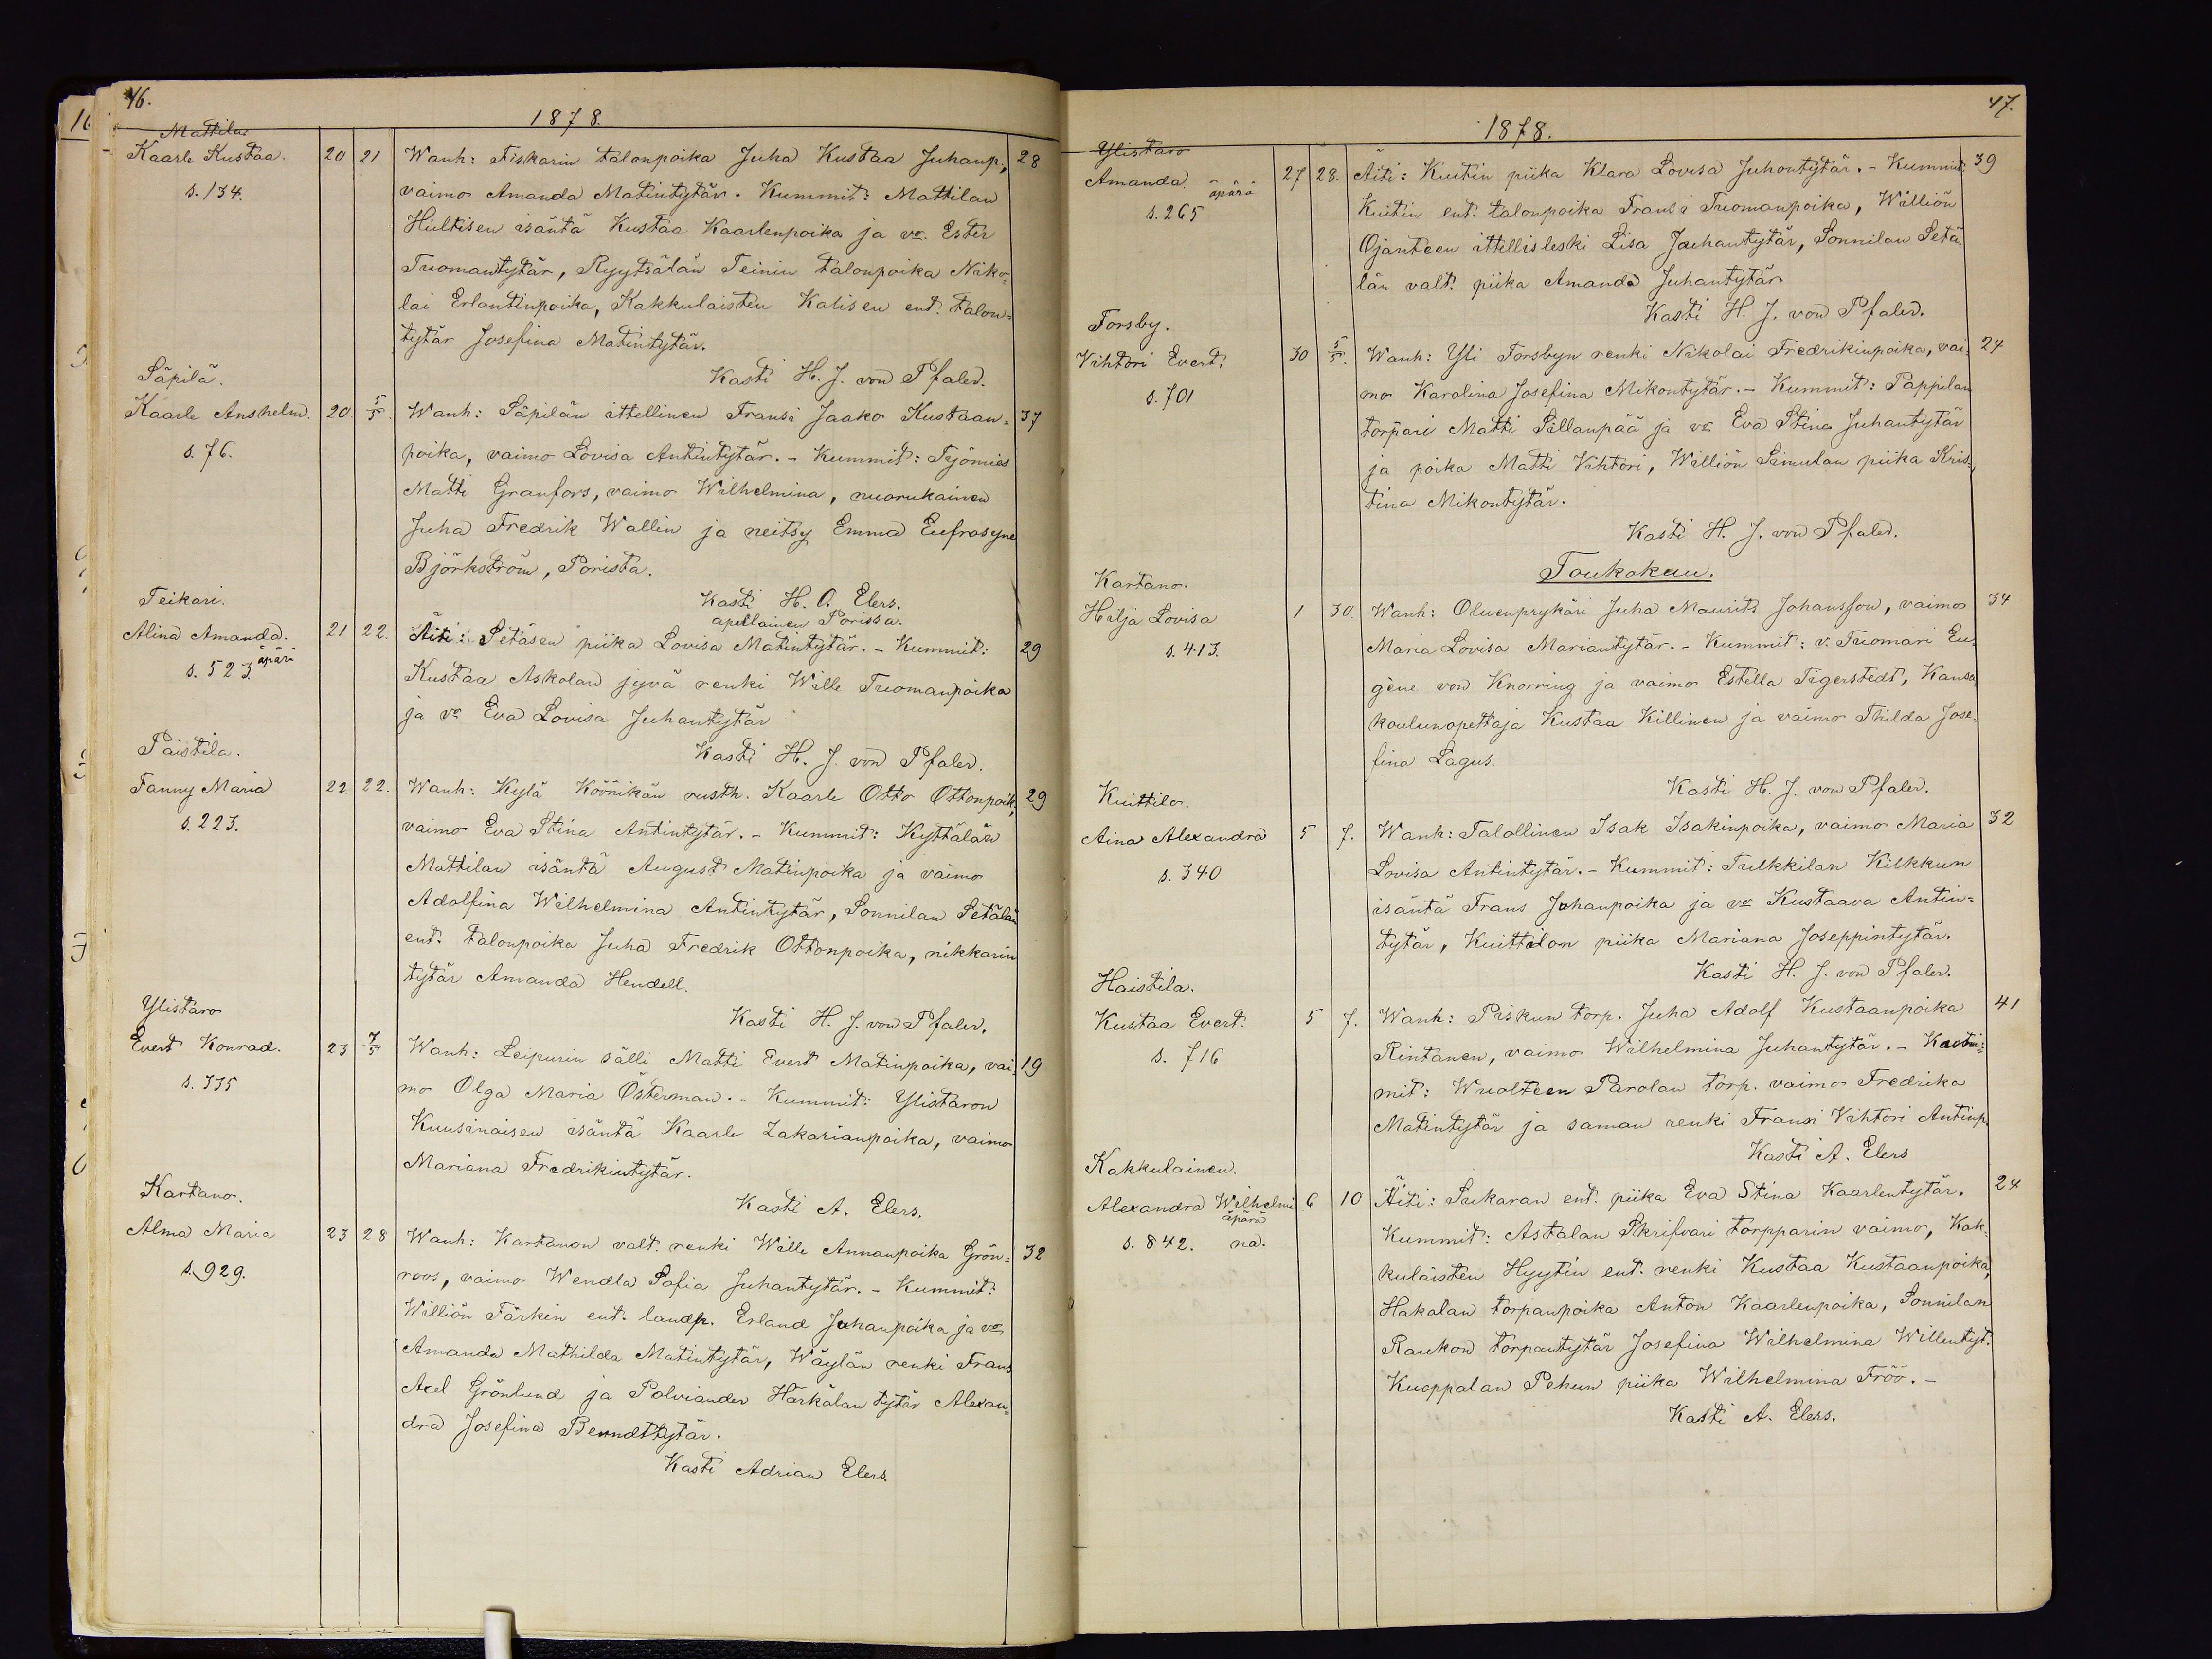 46.
1878.
Mattila
Kaarle Kustaa. 20 21 Wanh: Fiskarin talonpoika Juha Kustaa Juhanp, 28
s. 134. vaimo Amanda Matintytär. Kummit: Mattilan
Hiltisen isäntä Kustaa Kaarlenpoika ja vo. Ester
Tuomantytär, Ryytsälän Teinin talonpoika Niko-
lai Erlantinpoika, Kakkulaisten Kalisen ent. talon-
tytär Josefina Matintytär.
Kasti H. J. von Pfaler.
Säpilä.
Kaarle Anshelm. 20. 5/5. Wanh: Säpilän ittellinen Fransi Jaako Kustaan- 37
s. 76. poika, vaimo Lovisa Antintytär. - Kummit: Työmies
Matti Granfors, vaimo Wilhelmina, nuorukainen
Juha Fredrik Wallin ja neitsy Emma Eufrosyne
Björkström, Porista.
Kasti H. O. Elers.
apellainen Porissa.
Teikari.
Alina Amanda. 21 22. Äiti: Setäsen piika Lovisa Matintytär. - Kummit: 29
äpärä
s. 523. Kustaa Askolan jyvä renki Wille Tuomanpoika
ja vo Eva Lovisa Juhantytär
Kasti H. J. von Pfaler.
Paistila.
Fanny Maria 22. 22. Wanh: Kylä Köönikän rusth. Kaarle Otto Ottonpoik, 29
s. 223. vaimo Eva Stina Antintytär. - Kummit: Kyttälän
Mattilan isäntä August Matinpoika ja vaimo
Adolfina Wilhelmina Antintytär, Sonnilan Setälän
ent. talonpoika Juha Fredrik Ottonpoika, nikkarin
tytär Amanda Hendell.
Kasti H. J. von Pfaler.
Ylistaro
Evert Konrad. 23 7/5 Wanh: Leipurin sälli Matti Evert Matinpoika, vai- 19
s. 335 mo Olga Maria Österman. - Kummit: Ylistaron
Kuusinaisen isäntä Kaarle Zakarianpoika, vaimo
Mariana Fredrikintytär.
Kasti A. Elers.
Kartano.
Alma Maria 23 28 Wanh: Kartanon valt. renki Wille Annanpoika Grön- 32
s. 929. roos, vaimo Wendla Sofia Juhantytär. - Kummit:
Williön Färkin ent. landp. Erland Juhanpoika ja vo
Amanda Mathilda Matintytär, Wäylän renki Frans
Axel Grönlund ja Polviander Härkälän tytär Alexan-
dra Josefina Berndttytär.
Kasti Adrian Elers.
47.
1878.
Ylistaro
Amanda. 27 28. Äiti: Kuitin piika Klara Lovisa Juhontytär. - Kummit: 39
äpärä
s. 265 Kuitin ent. talonpoika Fransi Tuomanpoika, Williön
Ojanteen ittellisleski Lisa Juhantytär, Sonnilan Setä-
län valt. piika Amanda Juhantytär
Kasti H. J. von Pfaler.
Forsby.
Vihtori Evert. 30 5/5. Wanh: Yli Forsbyn renki Nikolai Fredrikinpoika, vai- 24
s. 701 mo Karolina Josefina Mikontytär. - Kummit: Pappilan
torpari Matti Sillanpää ja vo Eva Stina Juhantytär
ja poika Matti Vihtori, Williön Simulan piika Kris-
tina Mikontytär.
Kasti H. J. von Pfaler.
Toukokuu.
Kartano.
Hilja Lovisa 1 30. Wanh: Oluenprykäri Juha Maurits Johansson, vaimo 34
s. 413. Maria Lovisa Mariantytär. - Kummit: v. Tuomari Eu-
gène von Knorring ja vaimo Estella Tigerstedt, Kansa-
koulunopettaja Kustaa Killinen ja vaimo Thilda Jose-
fina Lagus.
Kasti H. J. von Pfaler.
Kuittilo.
Aina Alexandra 5 7. Wanh: Talollinen Isak Isakinpoika, vaimo Maria 32
s. 340 Lovisa Antintytär. - Kummit: Tulkkilan Kilkkun
isäntä Frans Juhanpoika ja vo Kustaava Antin-
tytär, Kuittilon piika Mariana Joseppintytär.
Kasti H. J. von Pfaler.
Haistila.
Kustaa Evert. 5 7. Wanh: Piskun torp. Juha Adolf Kustaanpoika 41
s. 716 Rintanen, vaimo Wilhelmina Juhantytär. -
mit: Wuolteen Parolan torp. vaimo Fredrika
Matintytär ja saman renki Fransi Vihtori Antinp.
Kasti A. Elers
Kakkulainen.
Alexandra Wilhelmi 6 10 Äiti: Sukaran ent. piika Eva Stina Kaarlentytär. 24
äpärä
s. 842. na. Kummit: Astalan Skrifvari torpparin vaimo, Kak-
kulaisten Hyytin ent. renki Kustaa Kustaanpoika,
Hakalan torpanpoika Anton Kaarlenpoika, Sonnilan
Raukon torpantytär Josefina Wilhelmina Willentyt.
Kuoppalan Pekun piika Wilhelmina Fröö. -
Kasti A. Elers.